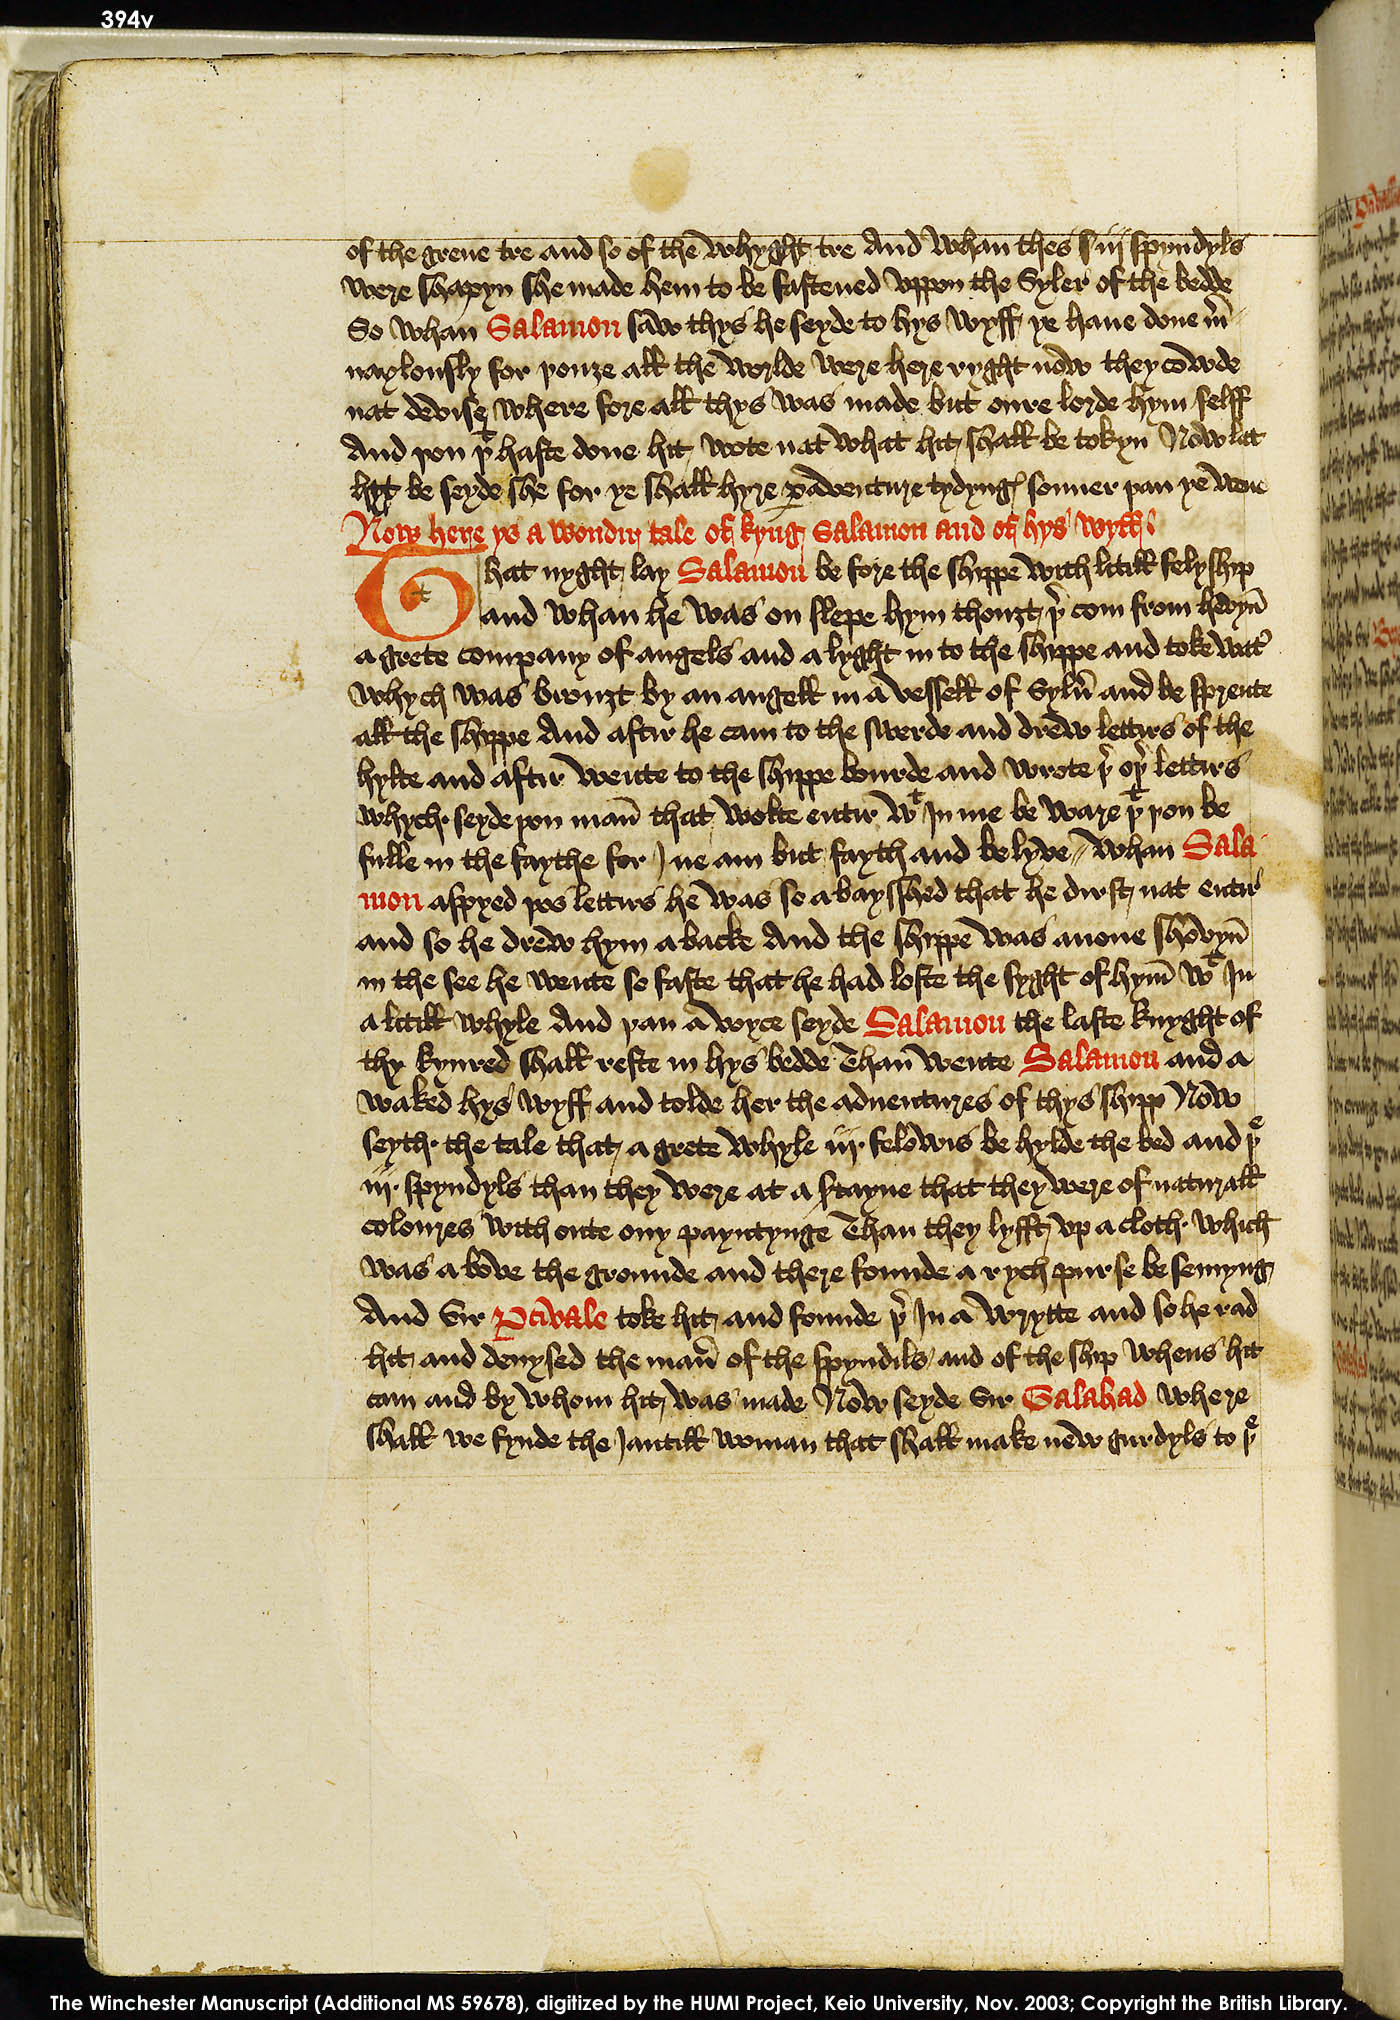 394v
of the grene tre and so of the whyght tre And whan thes iij spyndyls
were shapyn she made hem to be fastened vppon the Syler of the bedde
So whan Salamon saw thys he seyde to hys wyff ye haue done m̃
vaylously for þouze all the worlde were here ryght now they cowde
nat devise where fore all thys was made but oure lorde hym selff
And þou þͭ haste done hit wote nat what hit shall be tokyn Now lat
hyt be seyde she for ye shall hyre ꝑadventure tydyngꝭ sonner þan ye wene
Now here ys a wondir tale of kyng Salamon and of hys wyff
That nyght lay Salamon be fore the shippe with litill felyship
and whan he was on slepe hym thouzt þ̾ com from hevyñ
a grete company of angels and a lyght in to the shippe and toke wat̾
whych was brouzt by an angell in a vessell of sylũ and be sprente
all the shippe And aftir he cam to the swerde and drew lettirs of the
hylte and aftir wente to the shippe bourde and wrote þ̾ oþ̾ lettirs
whych seyde þou mañ that wolte entir wͭ In me be ware þͭ þou be
fulle in the faythe for I ne am but fayth and be lyve // Whan Sala
mon aspyed þos lettirs he was so a bayshed that he durst nat entir
and so he drew hym a backe And the shippe was anone shovyñ
in the see he wente so faste that he had loste the syght of hym̃ wͭ In
a litill whyle And þan a voyce seyde Salamon the laste knyght of
thy kynred shall reste in hys bedde Than wente Salamon and a
waked hys wyff and tolde her the aduentures of thys shipp Now
seyth the tale that a grete whyle iij felowis be hylde the bed and þͤ
iij spyndyls than they were at a stayne that they were of naturall
coloures with oute ony payntynge Than they lyfft vp a cloth which
was a bove the grounde and there founde a rych purse be semyng
And Sir Ꝑcivale toke hit and founde þ̾ In a wrytte and so he rad
hit and devysed the mañ of the spyndils and of the ship whens hit
cam and by whom hit was made Now seyde Sir Galahad where
shall we fynde the Jantill woman that shall make new gurdyls to þͤ
The Winchester Manuscript (Additional MS 59678), digitized by the HUMI Project, Keio University, Nov. 2003; Copyright the British Library.